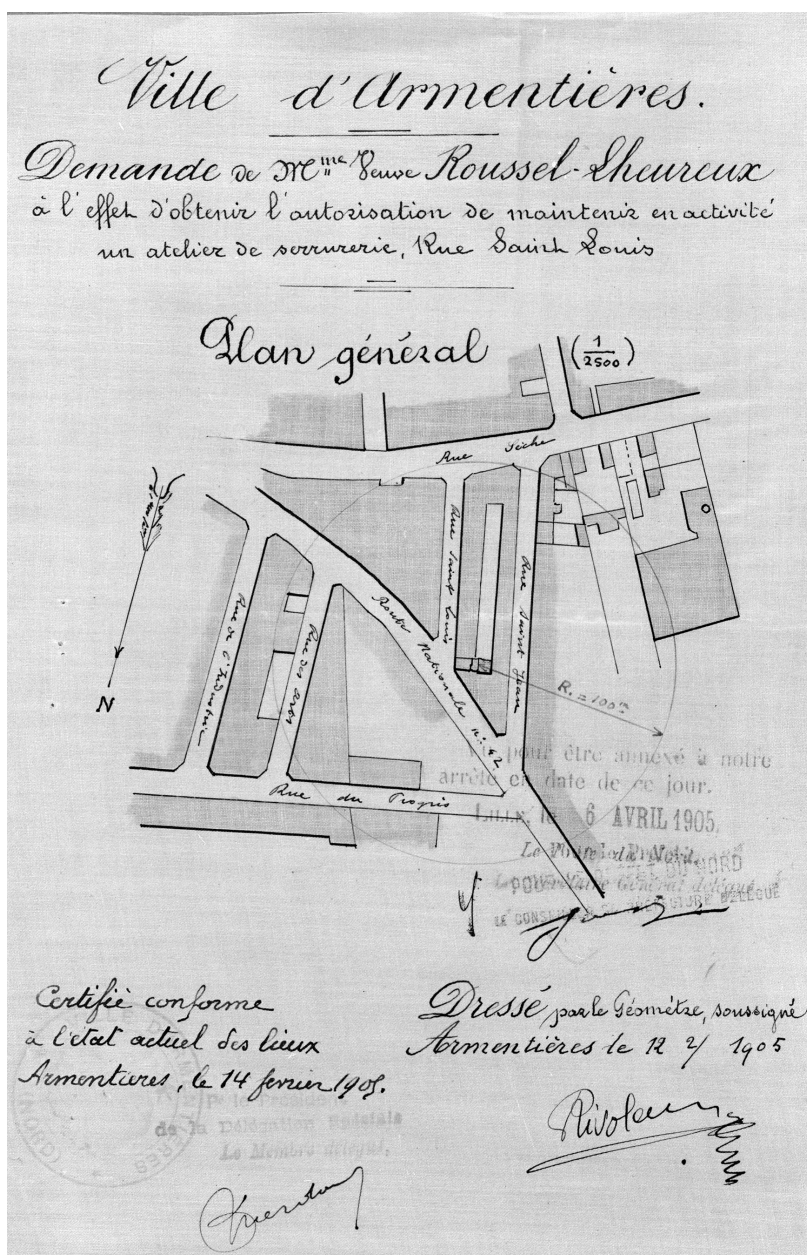 Ville d'Armentières.
Demande de Mme Veuve Roussel-Lheureux
à l'effet d'obtenir l'autorisation de maintenir en activité
un atelier de serrurerie, Rue Saint Louis
Plan général (1/2500)
Rue Sèche
Rue Saint Louis
Rue Saint Jean
Route Nationale n: 42
Rue de l'Industrie
Rue des Arts
N
R. = 100m
Rue du Progrès
Vu pour être annexé à notre
arrêté en date de ce jour.
LILLE, le 6 AVRIL 1905.
Le Préfet du Nord,
POUR LE PRÉFET DU NORD
Le Secrétaire Général délégué
LE CONSEILLER DE PRÉFECTURE DÉLÉGUÉ
Certifié conforme
à l'état actuel des lieux
Armentières, le 14 fevrier 1905.
Le Président
de la Délégation Spéciale
Le Membre délégué,
Dressé par le Géomètre, soussigné
Armentières le 12 2/ 1905